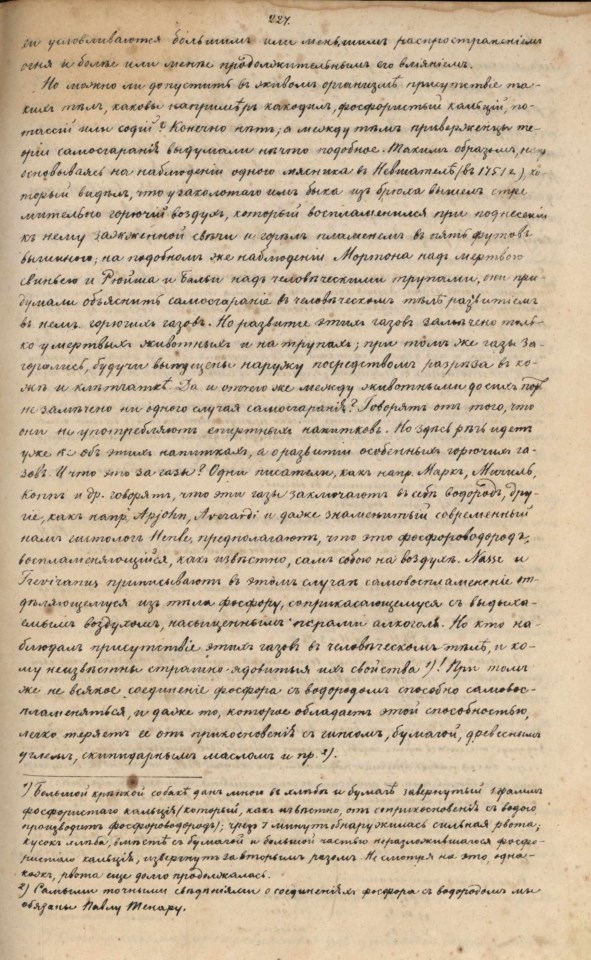 227.
ея условливаются большимъ или меньшимъ распространеніемъ
огня и болѣе или менѣе продолжительнымъ его вліяніемъ.
Но можно ли допустить въ живомъ организмѣ присутствіе та-
кихъ тѣлъ, каковы напримѣръ какодилъ, фосфористый кальцій, по-
тассій или содій? Конечно нѣтъ; а между тѣмъ приверженцы те-
оріи самосгаранія выдумали нѣчто подобное. Такимъ образомъ, не
основываясь на наблюденіи одного мясника въ Невшателѣ (въ 1751 г.) ко-
торый видѣлъ, что у заколотаго имъ быка изъ брюха вышелъ стре
мительно горючій воздухъ, который воспламенился при поднесеніи
къ нему зажженной свѣчи и горѣлъ пламенемъ въ пять футовъ
вышиною; на подобномъ же наблюденіи Мортона надъ мертвою
свиньею и Рюйша и Бальи надъ человѣческими трупами, они при-
думали объяснить самосгараніе въ человѣческомъ тѣлѣ развитіемъ
въ немъ горючихъ газовъ. Но развитіе этихъ газовъ замѣчено толь-
ко у мертвыхъ животныхъ и на трупахъ; при томъ же газы за-
горались, будучи выпущены наружу посредствомъ разрѣза въ ко-
жѣ и клѣтчаткѣ. Да и отчего же между животными до сихъ поръ
не замѣчено ни одного случая самосгаранія? Говорятъ отъ того, что
они не употребляютъ спиртныхъ напитковъ. Но здѣсь рѣчь идетъ
уже не объ этихъ напиткахъ, а о развитіи особенныхъ горючихъ га-
зовъ. И что это за газы? Одни писатели, какъ напр. Маркъ, Мичиль,
Коппъ и др. говорятъ, что эти газы заключаютъ въ себѣ водородъ, дру-
гіе, какъ напр. Apjohn, Averardi и даже знаменитый современный
намъ гистологъ Henle, предполагаютъ, что это фосфороводородъ,
воспламеняющійся, какъ извѣстно, самъ собою на воздухѣ. Nasse и
Treviranus приписываютъ въ этомъ случаѣ самовоспламененіе от-
дѣляющемуся изъ тѣла фосфору, соприкасающемуся съ выдыха-
емымъ воздухомъ, насыщеннымъ парами алкоголя. Но кто на-
блюдалъ присутствіе этихъ газовъ въ человѣческомъ тѣлѣ, и ко-
му неизвѣстны страшно-ядовитыя ихъ свойства ¹)! При томъ
же не всякое соединеніе фосфора съ водородомъ способно самовос-
пламеняться, и даже то, которое обладаетъ этой способностью,
легко теряетъ ее отъ прикосновенія съ гипсомъ, бумагой, древеснымъ
углемъ, скипидарнымъ масломъ и пр. ²).
¹) Большой крѣпкой собакѣ данъ мною въ хлѣбѣ и бумагѣ завернутый 1 драхмъ
фосфористаго кальція (который, какъ извѣстно, отъ соприкосновенія съ водою
производитъ фосфороводородъ); чрезъ 7 минутъ обнаружилась сильная рвота;
кусокъ хлѣба, вмѣстѣ съ бумагой и большой частью неразложившагося фосфо-
ристаго кальція, извергнутъ за вторымъ разомъ. Не смотря на это, одна-
кожъ, рвота еще долго продолжалась.
²) Самыми точными свѣдѣніями о соединеніяхъ фосфора съ водородомъ мы
обязаны Павлу Тенару.